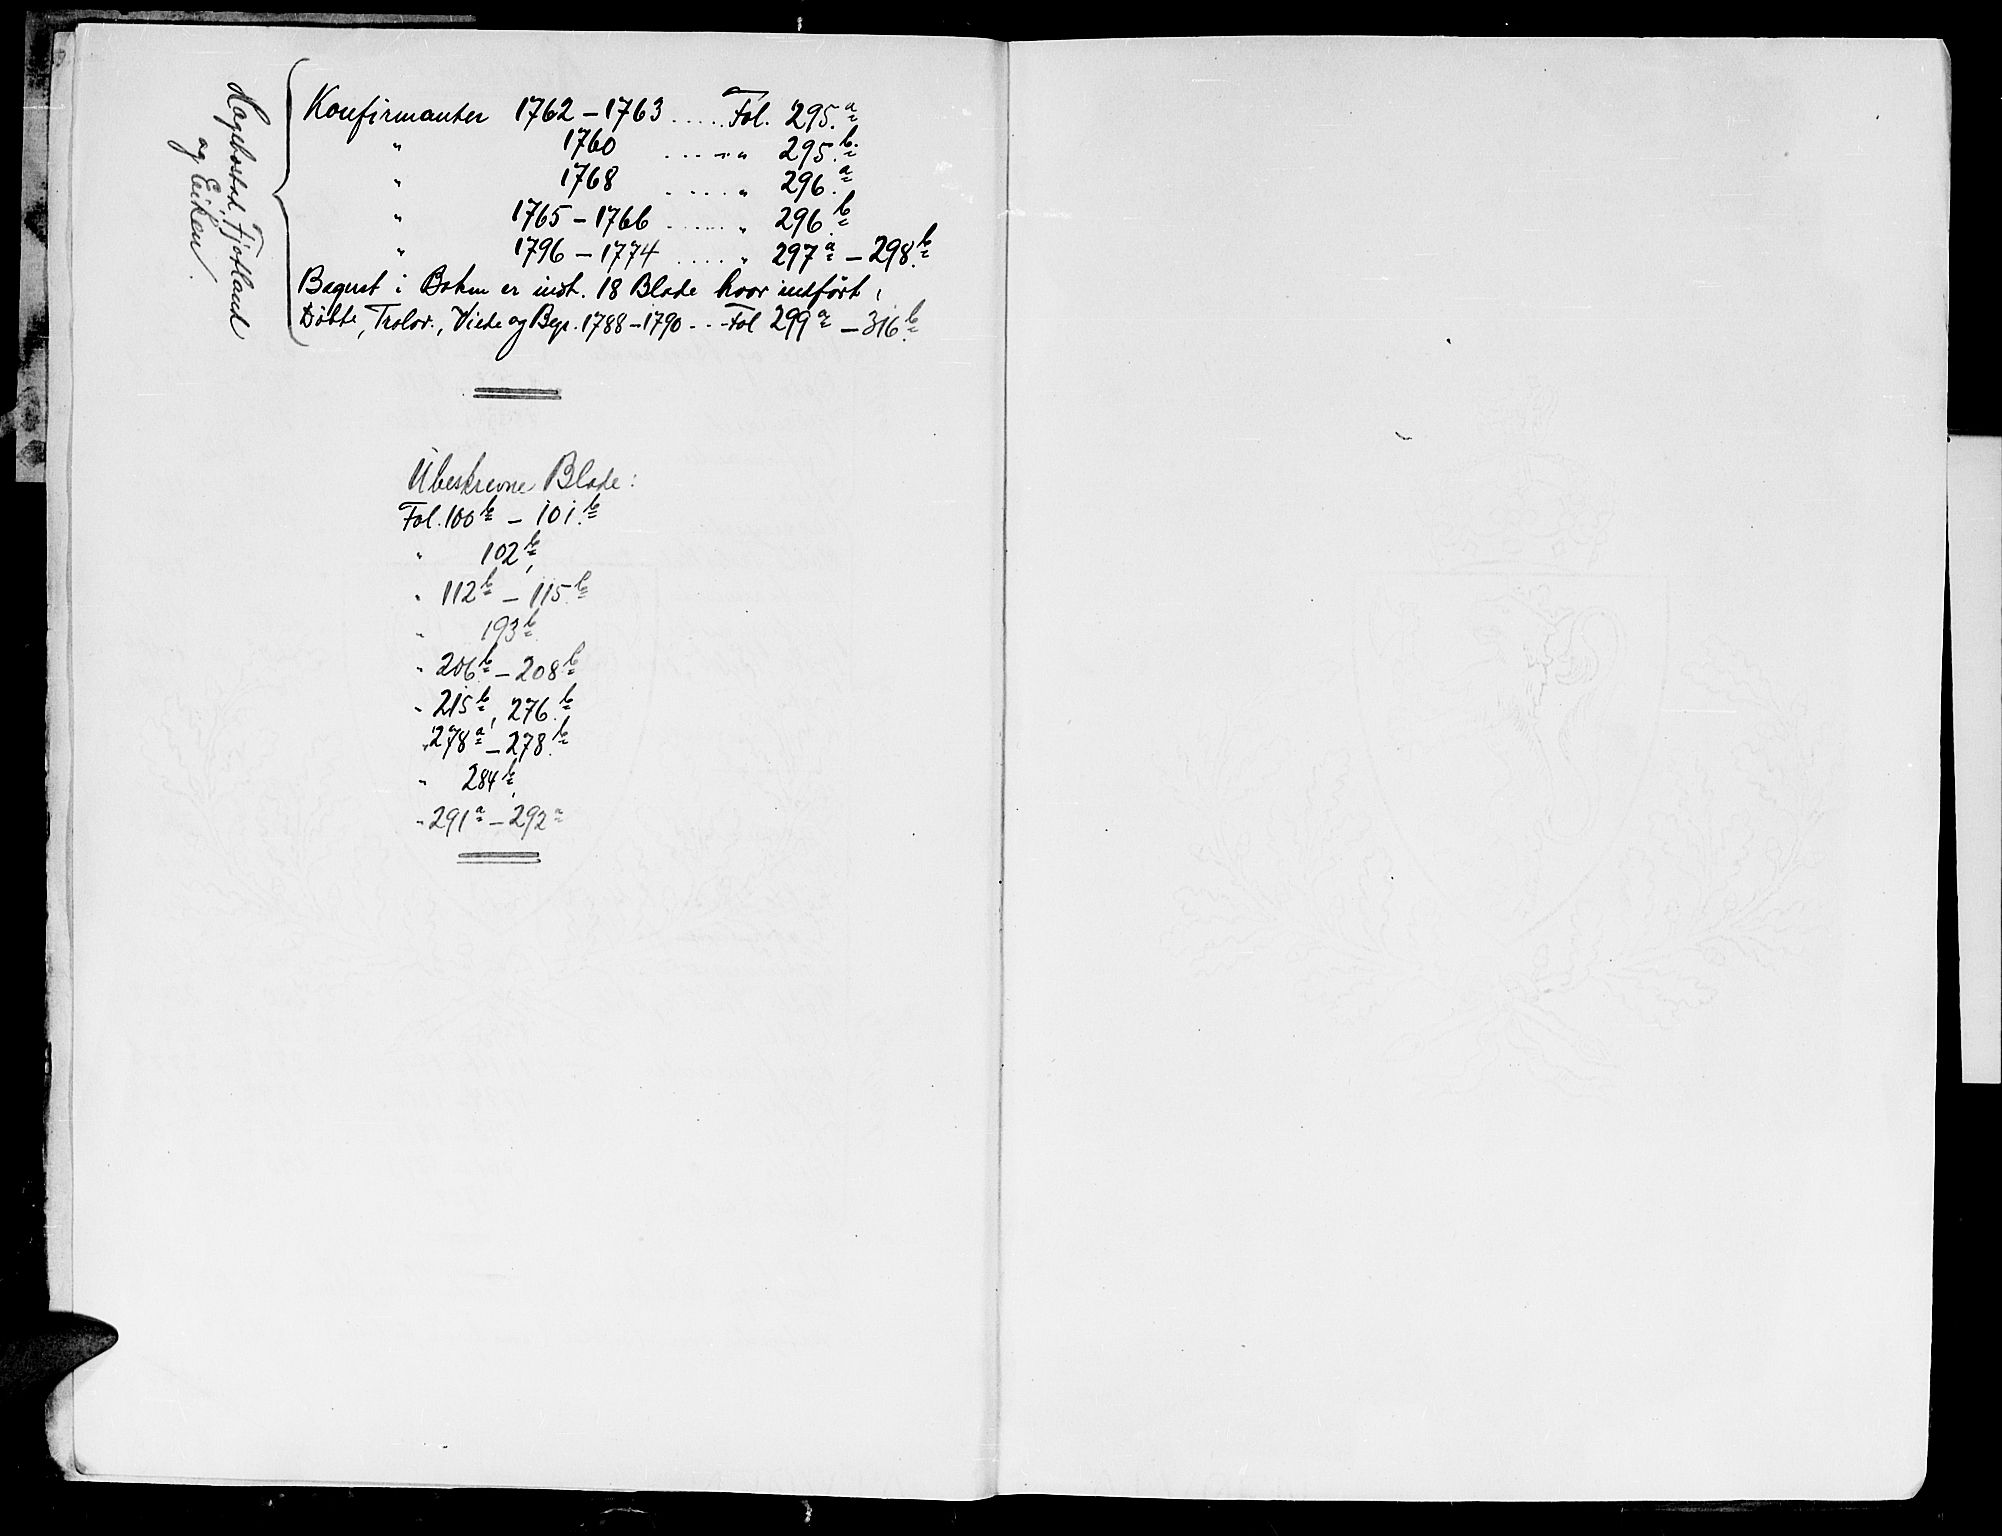 Hægebostad, Fjotland
og Eiken.
Konfirmanter 1762 – 1763 ..... Fol. 295.a
" 1760 ..... " 295.b
" 1768 ..... " 296.a
" 1765 – 1766 ...... " 296.b
" 1796 – 1774 ..... " 297a – 298.b
Bagerst i Boken er inst. 18 Blade hvor indført:
Döbte, Trolov., Viede og Begr. 1788 – 1790 ... Fol 299a – 316.b
Ubeskrevne Blade:
Fol. 100b – 101.b
" 102b,
" 112b – 115.b
" 193b
" 206b – 208b
" 215b, 276.b
" 278a – 278.b
" 284b,
" 291a – 292a